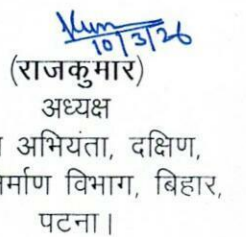 10/3/26
(राजकुमार)
अध्यक्ष
अभियंता, दक्षिण,
विभाग, बिहार,
पटना।